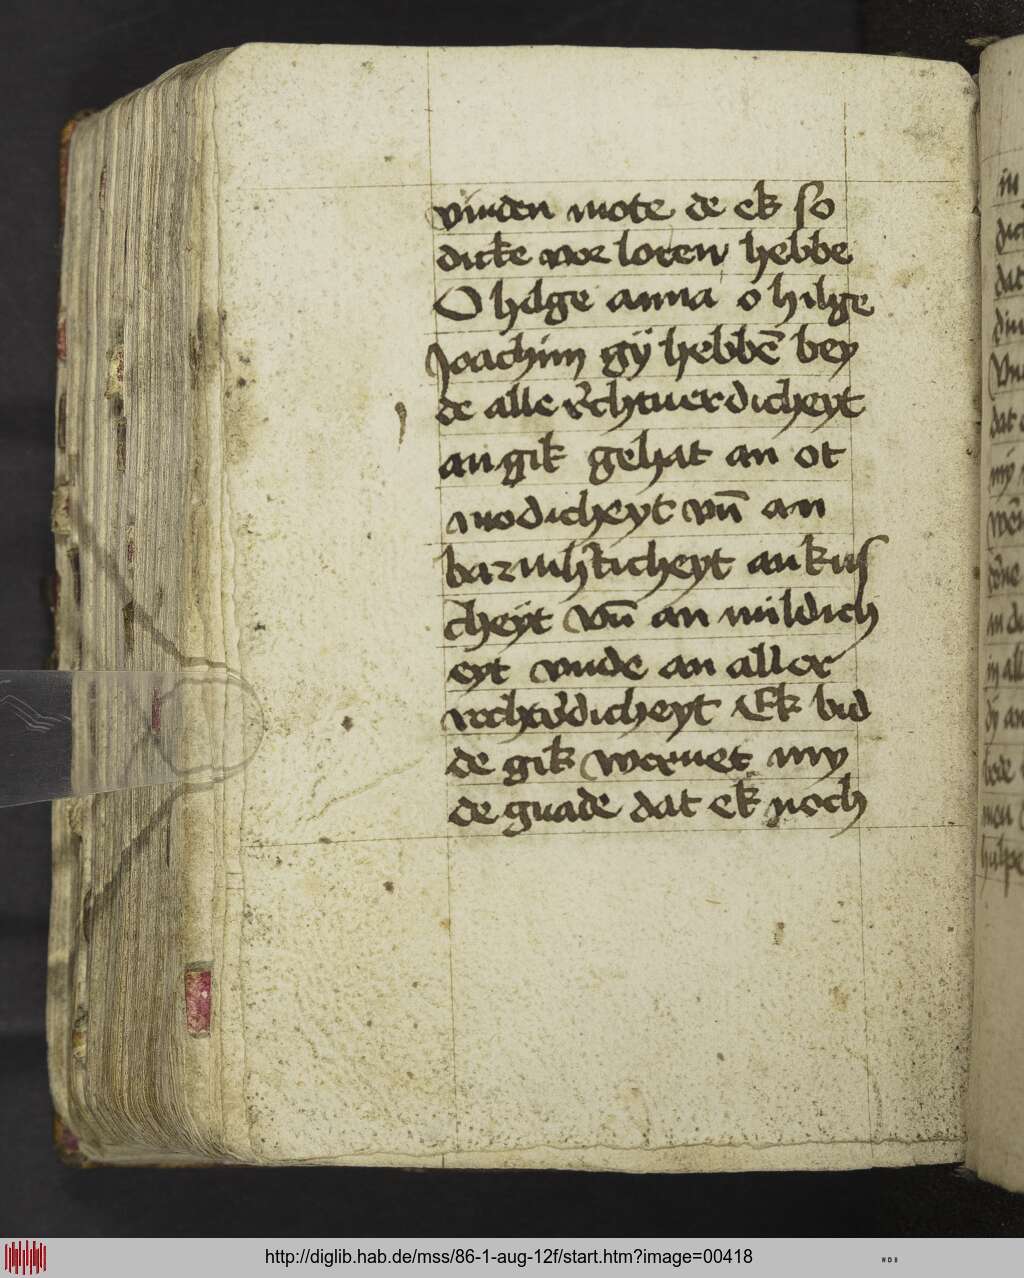 vinden mote de ek so
dicke vor loren hebbe
O hilge anna o hilge
Joachim gÿ hebbē bey
de alle rechtuerdicheyt
an gik gehat an ot
modicheyt vn̄ an
barmh'ticheyt an kus
cheÿt vn̄ an mildich
eyt vnde an aller
rechtu'dicheyt Ek bid
de gik weruet my
de gnade dat ek noch
http://diglib.hab.de/mss/86-1-aug-12f/start.htm?image=00418